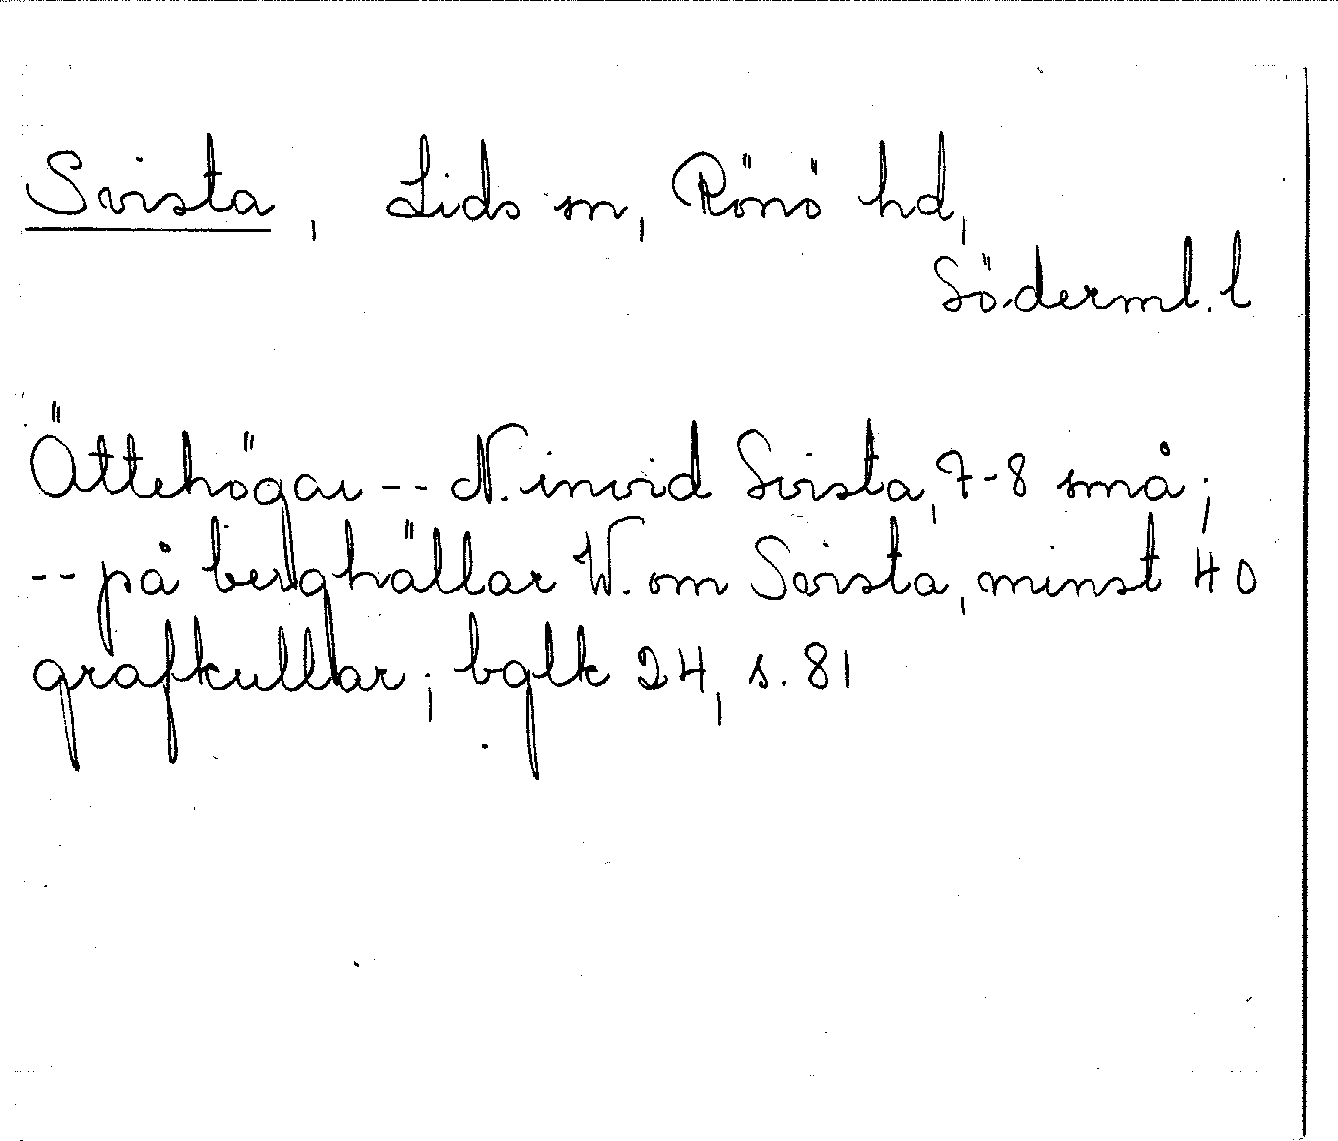 Svista, Lids sn, Rönö hd,
Söderml. l
Ättehögar -- N. invid Svista, 7-8 små;
-- på berghällar W. om Svista, minst 40
grafkullar; bglk 24, s. 81